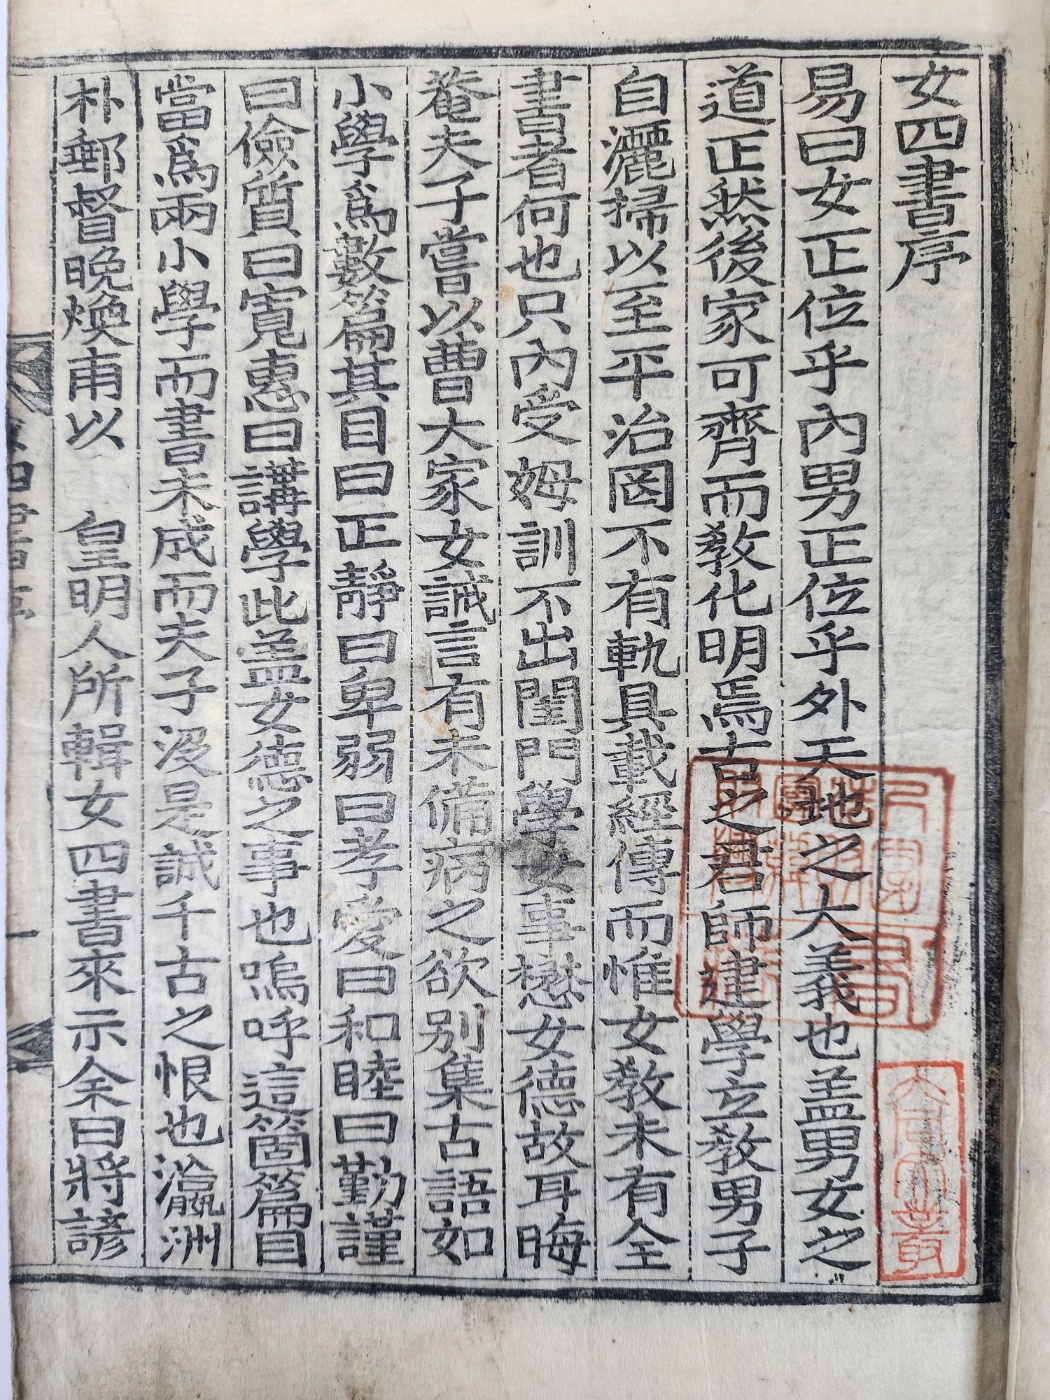 女四書序
易曰女正位乎內男正位乎外天地之大義也盖男女之
道正然後家可齊而敎化明焉古之君師建學立敎男子
自灑掃以至平治罔不有軌具載經傳而惟女敎未有全
書者何也只內受姆訓不出閨門學女事懋女德故耳晦
菴夫子嘗以曹大家女誡言有未備病之欲別集古語如
小學爲數篇其目曰正靜曰卑弱曰孝愛曰和睦曰勤謹
曰儉質曰寬惠曰講學此盖女德之事也嗚呼這箇篇目
當爲兩小學而書未成而夫子沒是誠千古之恨也瀛洲
朴郵督晩煥甫以 皇明人所輯女四書來示余曰將諺